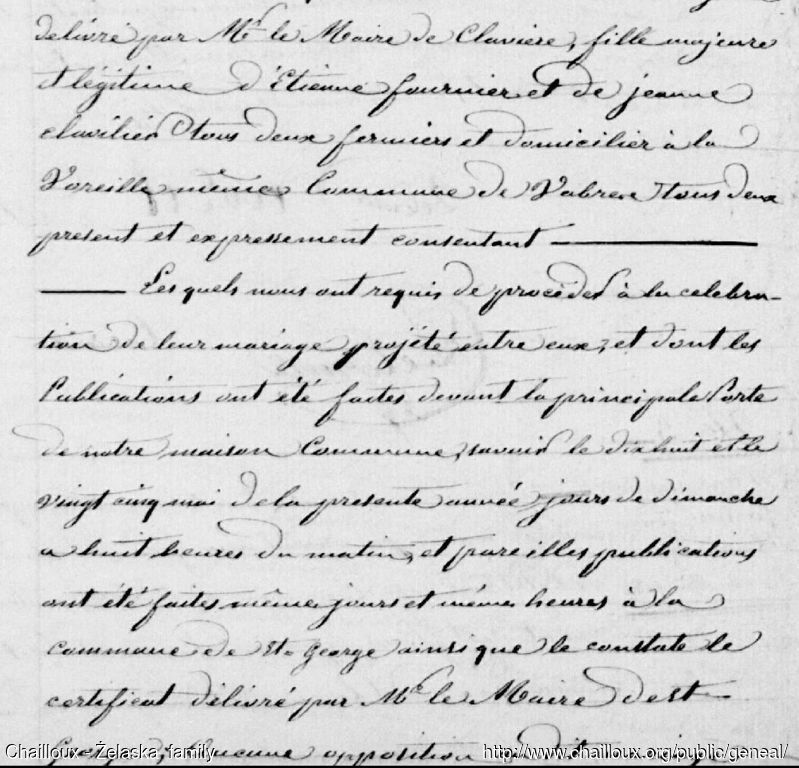 delivré par Mr le Maire de Claviere, fille majeure
et légitime d'Etienne fournier et de jeanne
clavilier tous deux fermiers et domicilier à la
Voreille même Commune de Vabres tous deux
present et expressement consentant
Les quels nous ont requis de procéder à la celebra-
tion de leur mariage projété entre eux, et dont les
Publications ont été faites devant la principale Porte
de notre maison Commune, savoir le dix huit et le
vingt cinq mai de la presente année jours de dimanche
a huit heures du matin, et pareilles publications
ont été faites même jours et mêmes heures à la
commune de St. George ainsi que le constate le
certificat délivré par Mr le Maire de st
Aucune opposition
Chailloux-Żelaska family http://www.chailloux.org/public/geneal/